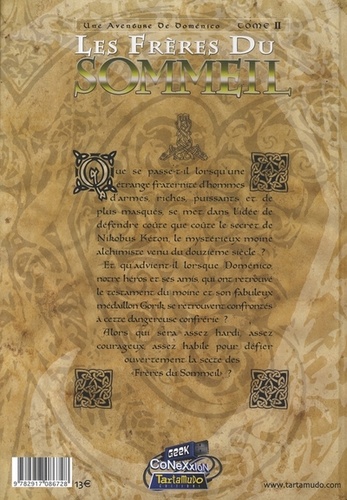 Une Aventure De Domenico - TOME II
LES FRÈRES DU
SOMMEIL
Que se passe-t-il lorsqu'une
étrange fraternité d'hommes
d'armes, riches, puissants et de
plus masqués, se met dans l'idée de
défendre coûte que coûte le secret de
Nikobus Kéron, le mystérieux moine
alchimiste venu du douzième siècle ?
Et qu'advient-il lorsque Domenico,
notre héros et ses amis qui ont retrouvé
le testament du moine et son fabuleux
medaillon Gorik, se retrouvent confrontés
à cette dangereuse confrérie ?
Alors qui sera assez hardi, assez
courageux, assez habile pour défier
ouvertement la secte des
«Frères du Sommeil» ?
9 782917 086728
13€
GEEK
CoNeXxion
Tartamudo
EDITIONS
www.tartamudo.com